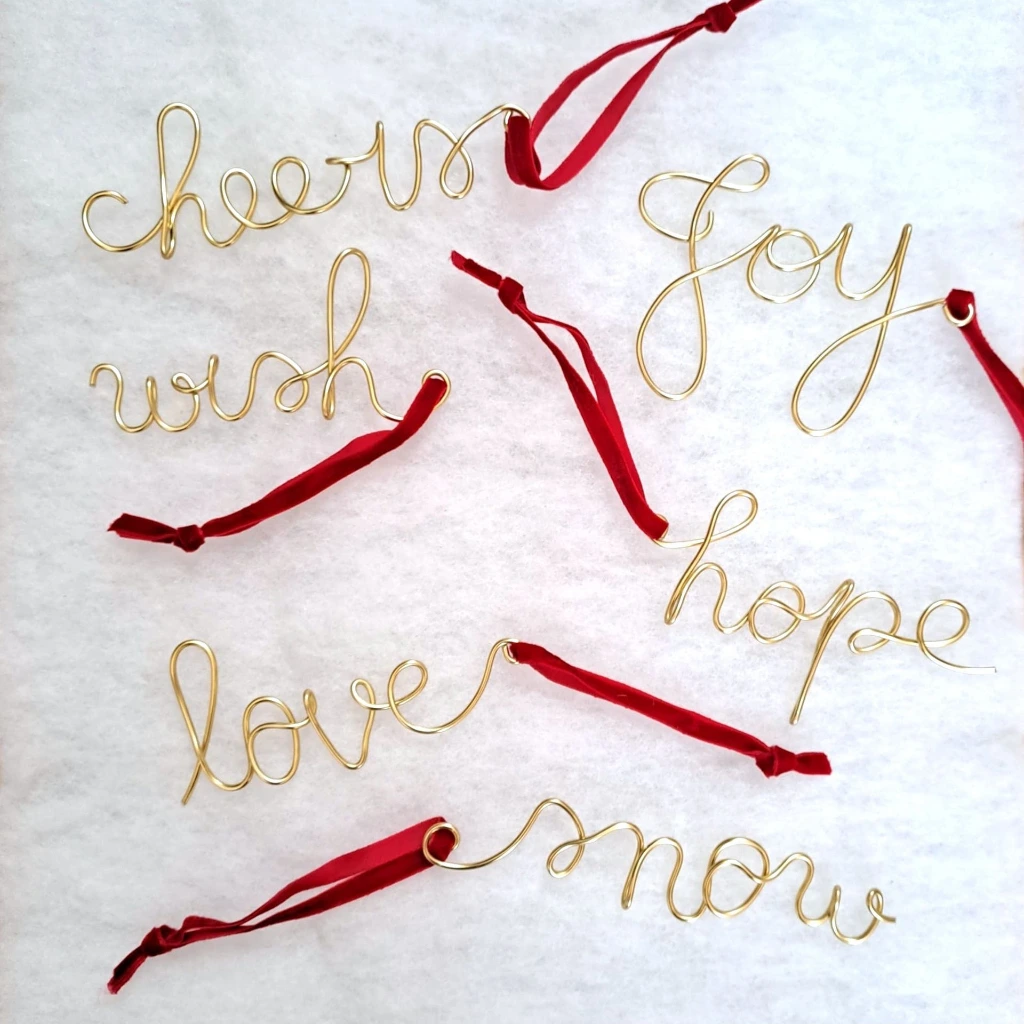 cheers
Joy
wish
hope
love
snow